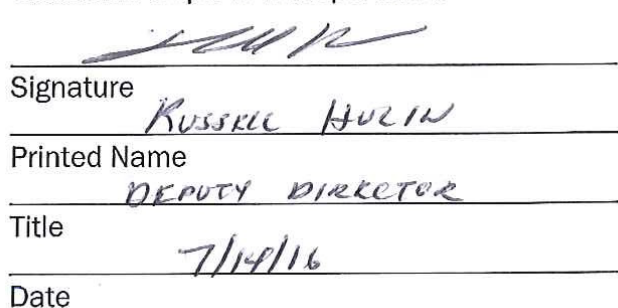 Signature
Russell Hulin
Printed Name
DEPUTY DIRECTOR
Title
7/14/16
Date